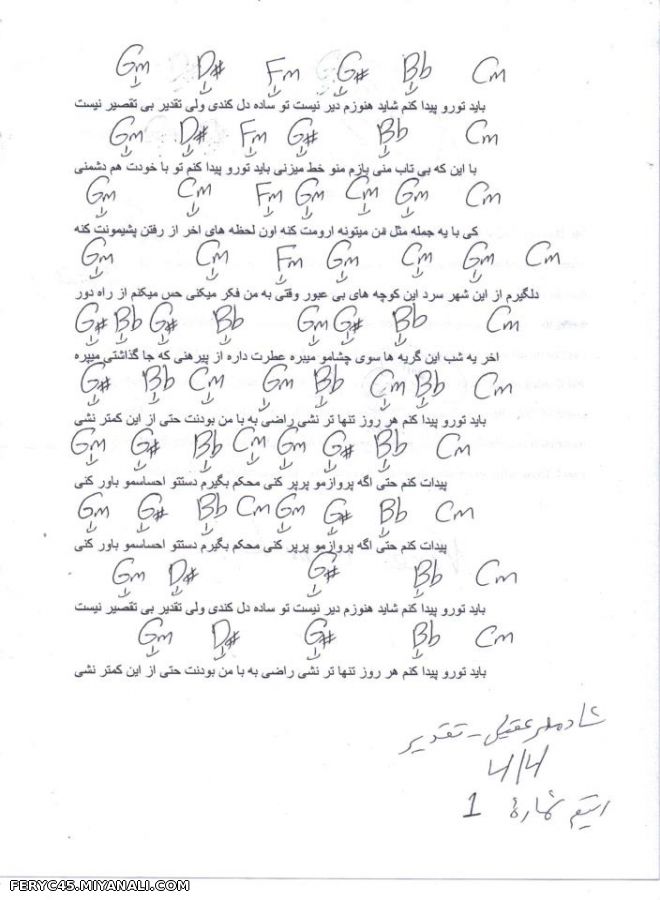 Gm D# Fm G# Bb Cm
باید تورو پیدا کنم شاید هنوزم دیر نیست تو ساده دل کندی ولی تقدیر بی تقصیر نیست
Gm D# Fm G# Bb Cm
با این که بی تاب منی بازم منو خط میزنی باید تورو پیدا کنم تو با خودت هم دشمنی
Gm Cm Fm Gm Cm Gm Cm
کی با یه جمله مثل من میتونه ارومت کنه اون لحظه های اخر از رفتن پشیمونت کنه
Gm Cm Fm Gm Cm Gm Cm
دلگیرم از این شهر سرد این کوچه های بی عبور وقتی به من فکر میکنی حس میکنم از راه دور
G# Bb G# Bb Gm G# Bb Cm
اخر یه شب این گریه ها سوی چشامو میبره عطرت داره از پیرهنی که جا گذاشتی میپره
G# Bb Cm Gm Bb Cm Bb Cm
باید تورو پیدا کنم هر روز تنها تر نشی راضی به با من بودنت حتی از این کمتر نشی
Gm G# Bb Cm Gm G# Bb Cm
پیدات کنم حتی اگه پروازمو پرپر کنی محکم بگیرم دستتو احساسمو باور کنی
Gm G# Bb Cm Gm G# Bb Cm
پیدات کنم حتی اگه پروازمو پرپر کنی محکم بگیرم دستتو احساسمو باور کنی
Gm D# G# Bb Cm
باید تورو پیدا کنم شاید هنوزم دیر نیست تو ساده دل کندی ولی تقدیر بی تقصیر نیست
Gm D# G# Bb Cm
باید تورو پیدا کنم هر روز تنها تر نشی راضی به با من بودنت حتی از این کمتر نشی
شادمهر عقیلی - تقدیر
4/4
ریتم شمارهٔ 1
FERYC45.MIYANALI.COM